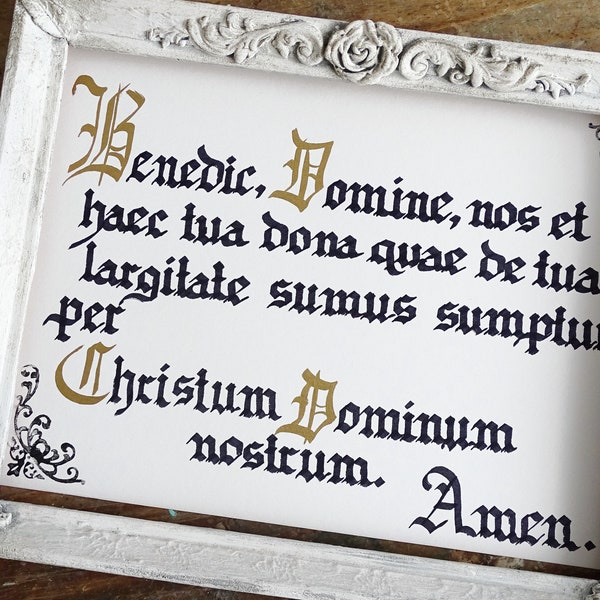 Benedic, Domine, nos et
haec tua dona quae de tua
largitate sumus sumptu
per
Christum Dominum
nostrum.
Amen.